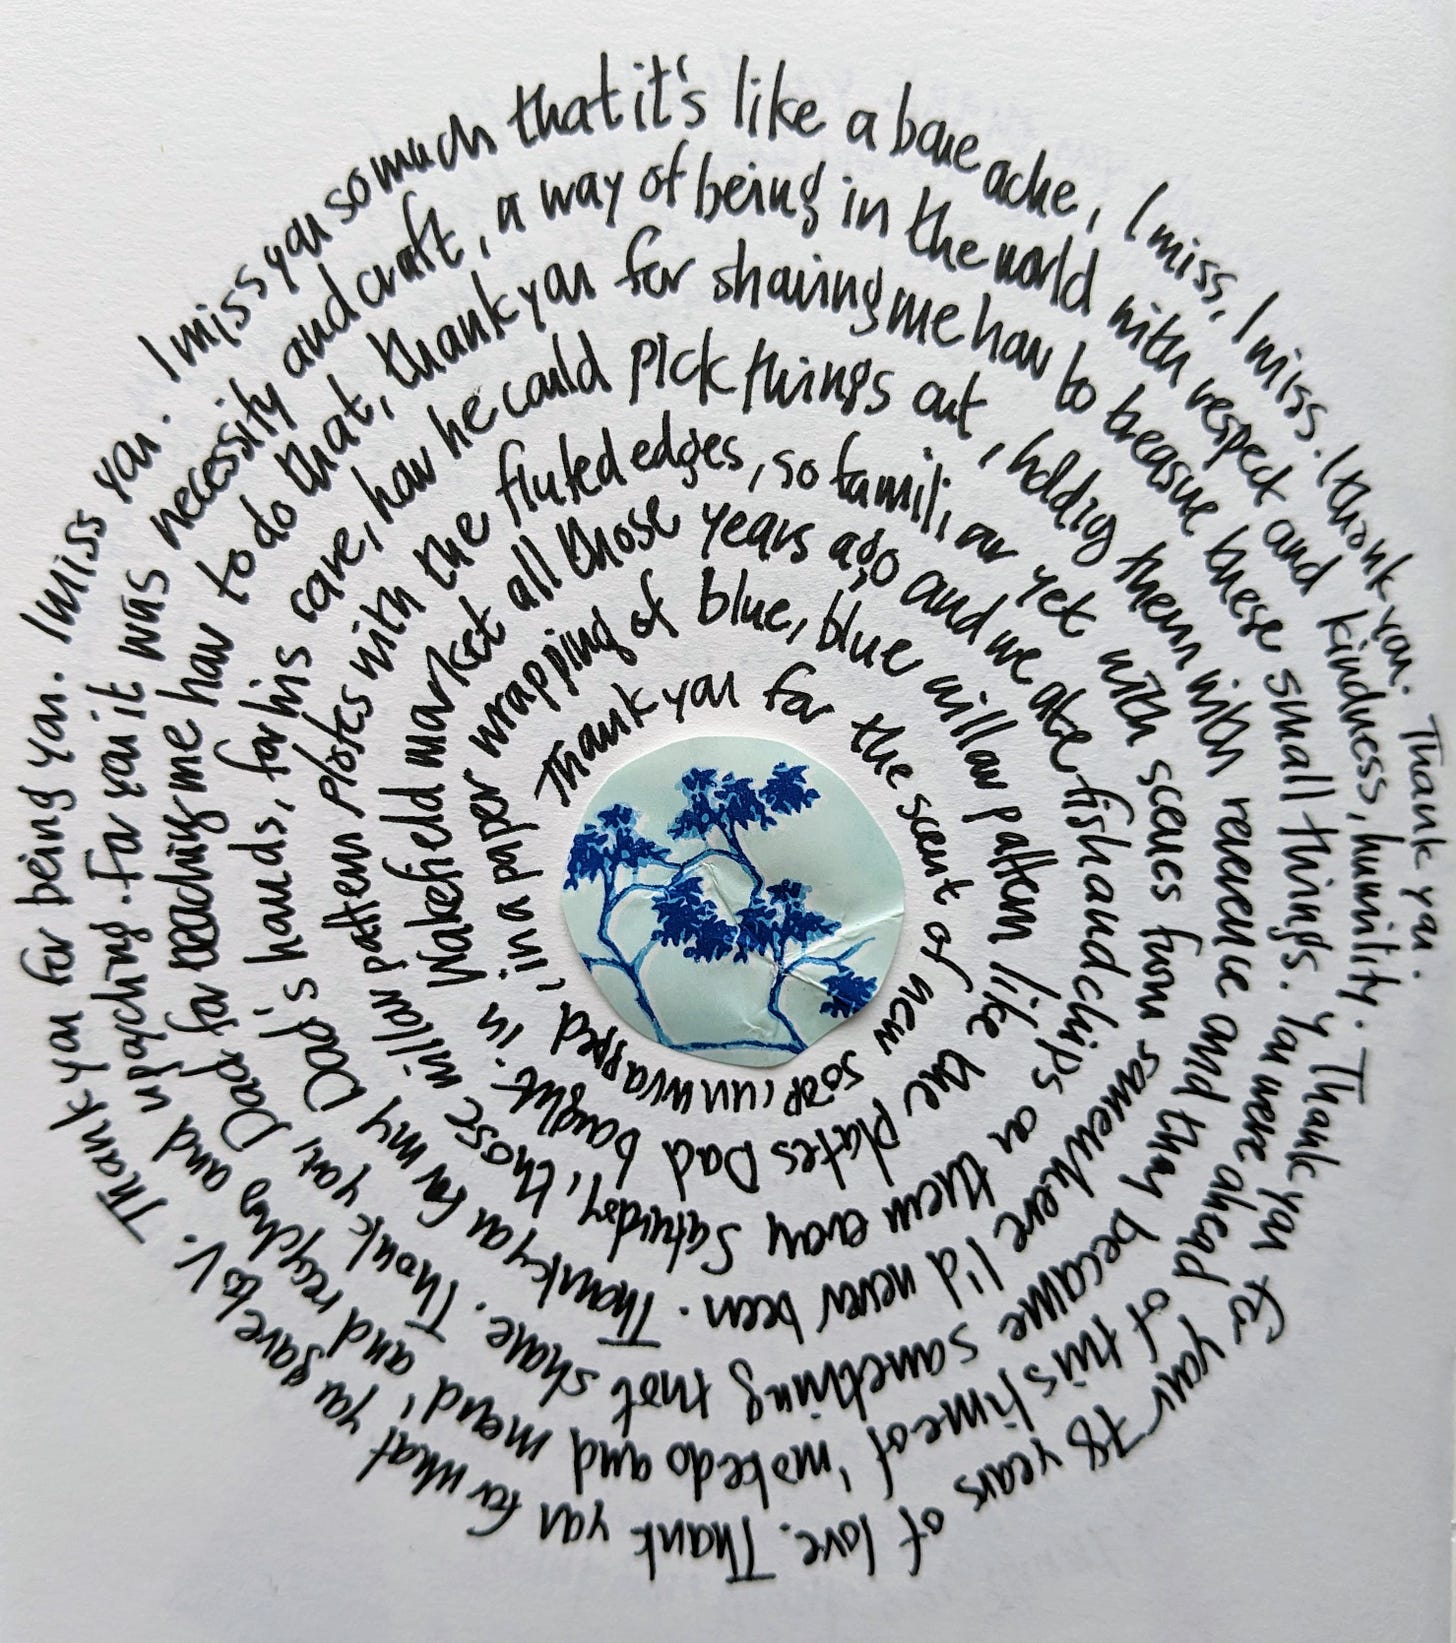 Thank you for the scent of new soap, unwrapped, in a paper wrapping of blue, blue willow pattern like the plates Dad bought. in Wakefield market all those years ago and we ate fish and chips on them every Saturday, those willow pattern plates with the fluted edges, so familiar yet with scenes from somewhere I'd never been. Thank you for my Dad's hands, for his care, how he could pick things out, holding them with reverence and they became something that shone. Thank you, Dad for teaching me how to do that, thank you for showing me how to treasure these small things. You were ahead of this time of 'make do and mend', and recycling and upcycling. For you it was necessity and craft, a way of being in the world with respect and kindness, humility. Thank you for your 78 years of love. Thank you for what you gave to V. Thank you for being you. I miss you. I miss you so much that it's like a bone ache, I miss, I miss. I thank you. Thank you.